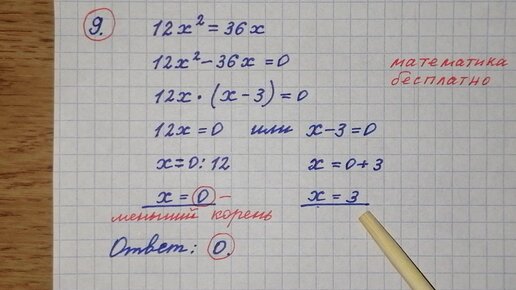 9. 12x² = 36x
12x² - 36x = 0
математика
бесплатно
12x · (x - 3) = 0
12x = 0 или x - 3 = 0
x = 0 : 12 x = 0 + 3
x = 0 - x = 3
меньший корень
Ответ: 0.